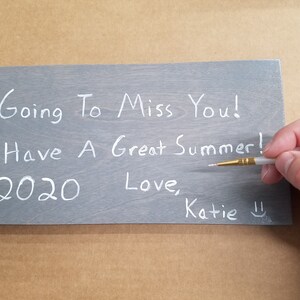 Going To Miss You!
Have A Great Summer!
2020 Love,
Katie